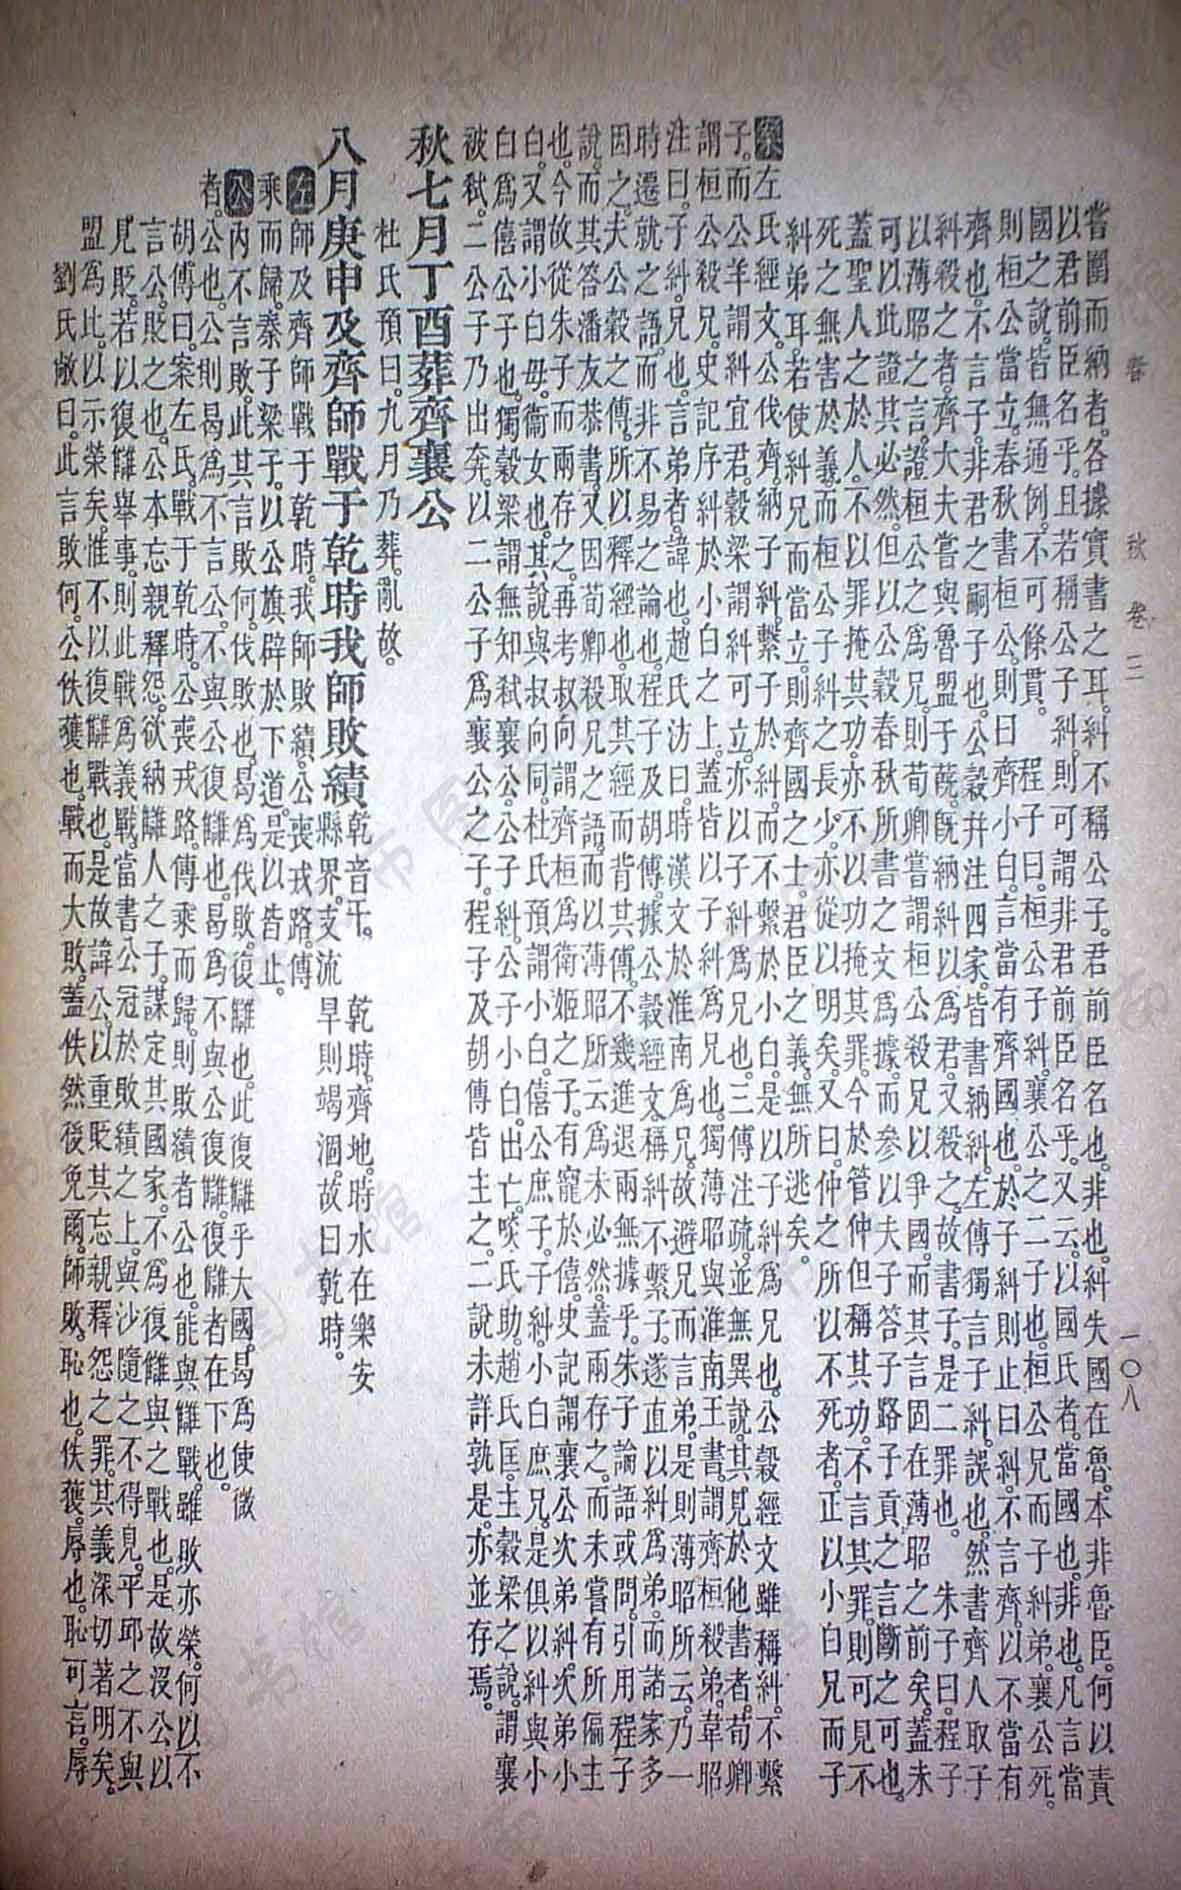 春　　秋　卷三　　一〇八
嘗圍而納者各據實書之耳糾不稱公子君前臣名也非也糾失國在魯本非魯臣何以責
以君前臣名乎且若稱公子糾則可謂非君前臣名乎又云以國氏者當國也非也凡言當
國之說皆無通例不可條貫。　程子曰桓公子糾襄公之二子也桓公兄而子糾弟襄公死
則桓公當立春秋書桓公則曰齊小白言當有齊國也於子糾則止曰糾不言齊以不當有
齊也不言子非君之嗣子也公穀并注四家皆書納糾左傳獨言子糾誤也然書齊人取子
糾殺之者齊大夫嘗與魯盟于蔇旣納糾以爲君又殺之故書子是二罪也。　朱子曰程子
以薄昭之言證桓公之爲兄則荀卿嘗謂桓公殺兄以爭國而其言固在薄昭之前矣蓋未
可以此證其必然但以公穀春秋所書之文爲據而參以夫子答子路子貢之言斷之可也
蓋聖人之於人不以罪掩其功亦不以功掩其罪今於管仲但稱其功不言其罪則可見不
死之無害於義而桓公子糾之長少亦從以明矣又曰仲之所以不死者正以小白兄而子
糾弟耳若使糾兄而當立則齊國之士君臣之義無所逃矣。
案左氏經文公伐齊納子糾繫子於糾而不繫於小白是以子糾爲兄也公穀經文雖稱糾不繫
子而公羊謂糾宜君穀梁謂糾可立亦以子糾爲兄也三傳注疏並無異說其見於他書者荀卿
謂桓公殺兄史記序糾於小白之上蓋皆以子糾爲兄也獨薄昭與淮南王書謂齊桓殺弟韋昭
注曰子糾兄也言弟者諱也趙氏汸曰時漢文於淮南爲兄故避兄而言弟是則薄昭所云乃一
時遷就之語而非不易之論也程子及胡傳據公穀經文稱糾不繫子遂直以糾爲弟而諸家多
因之夫公穀之傳所以釋經也取其經而背其傳不幾進退兩無據乎朱子論語或問引用程子
說而其答潘友恭書又因荀卿殺兄之語而以薄昭所云爲未必然蓋兩存之而未嘗有所偏主
也今故從朱子而兩存之再考叔向謂齊桓爲衛姬之子有寵於僖史記謂襄公次弟糾次弟小
白又謂小白母衞女也其說與叔向同杜氏預謂小白僖公庶子子糾小白庶兄是俱以糾與小
白爲僖公子也獨穀梁謂無知弒襄公公子糾公子小白出亡啖氏助趙氏匡主穀梁之說謂襄
被弒二公子乃出奔以二公子爲襄公之子程子及胡傳皆主之二說未詳孰是亦並存焉。
秋七月丁酉葬齊襄公
杜氏預曰九月乃葬亂故。
八月庚申及齊師戰于乾時我師敗績乾音干。　乾時齊地時水在樂安
縣界支流　旱則竭涸故曰乾時。
左師及齊師戰于乾時我師敗績公喪戎路傳
乘而歸秦子梁子以公旗辟於下道是以皆止。
公內不言敗此其言敗何伐敗也曷爲伐敗復讎也此復讎乎大國曷爲使微
者公也公則曷爲不言公不與公復讎也曷爲不與公復讎復讎者在下也。
胡傳曰案左氏戰于乾時公喪戎路傳乘而歸則敗績者公也能與讎戰雖敗亦榮何以不
言公貶之也公本忘親釋怨欲納讎人之子謀定其國家不爲復讎與之戰也是故沒公以
見貶若以復讎舉事則此戰爲義戰當書公冠於敗績之上與沙隨之不得見平邱之不與
盟爲比以示榮矣惟不以復讎戰也是故諱公以重貶其忘親釋怨之罪其義深切著明矣。
劉氏敞曰此言敗何公佚獲也戰而大敗蓋佚然後免爾師敗恥也佚獲辱也恥可言辱